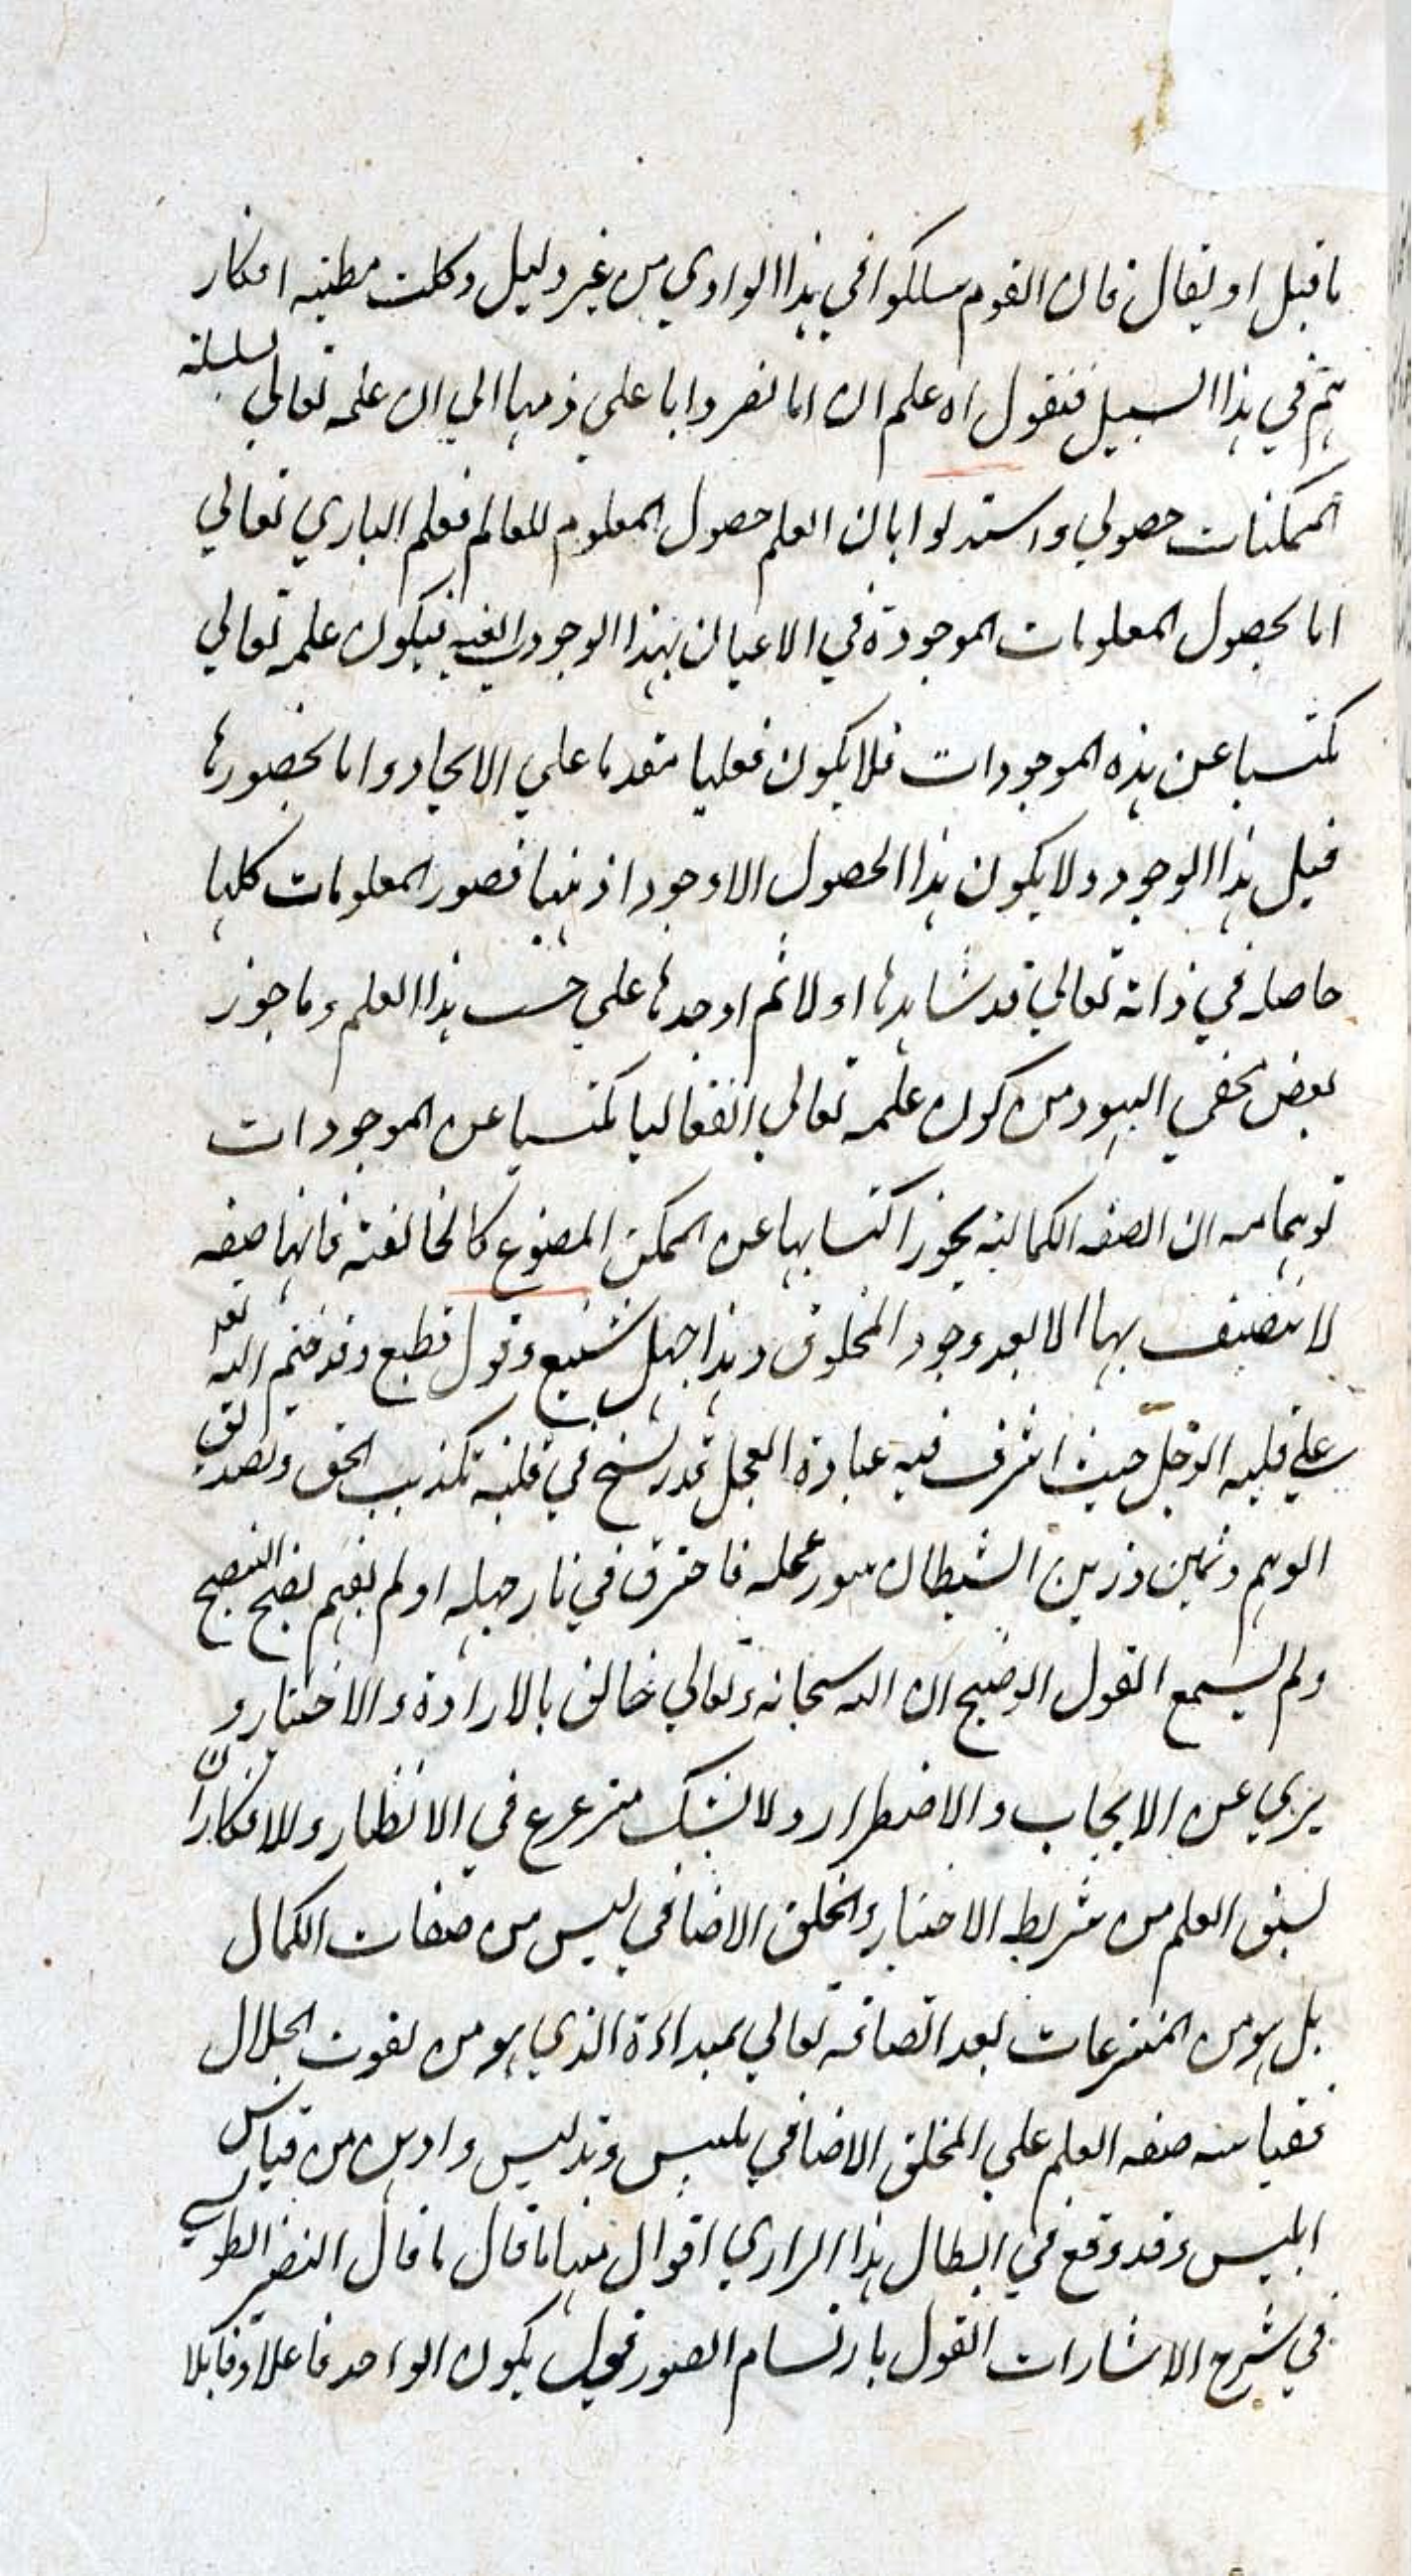 ما قيل او يقال فان القوم سلكوا في هذا الوادي من غير دليل وكلت مطيه افكار
هم في هذا السبيل فنقول اه علم ان ابا نصر وابا علي ذهبا الي ان علمه تعالي لسلسلة
الممكنات حصولي واستدلوا بان العلم حصول المعلوم للعالم فعلم الباري تعالي
اما بحصول المعلومات الموجودة في الاعيان بهذا الوجود فيكون علمه تعالي
مكتسبا عن هذه الموجودات فلا يكون فعليا متقدما علي الايجاد واما بحضورها
قبل هذا الوجود ولا يكون هذا الحصول الا وجودا ذهنيا فصور المعلومات كلها
حاصله في ذاته تعالي قد شاهدها اولا ثم اوجدها علي حسب هذا العلم وما جوز
بعض اليهود من كون علمه تعالي انفعاليا مكتسبا عن الموجودات
توهما منه ان الصفه الكماليه يجوز اكتسابها عن الممكن المصنوع كالخالقية فانها صفه
لا يتصف بها الا بعد وجود المخلوق وهذا جهل شنيع وقول فظيع وقد ختم الله تعه
علي قلبه الوجل حيث اشرف فيه عبادة العجل قد رسخ في قلبه تكذيب الحق وتصديق
الوهم وزين الشيطان سوء عمله فاحترق في نار جهله او لم يفهم نصح النصيح
ولم يسمع القول الوضيح ان الله سبحانه وتعالي خالق بالارادة والاختيار و
بري عن الايجاب والاضطرار ولا يشك مترعرع في الانظار والافكار ان
لسبق العلم من شريط الاختيار والخلق الاضافي ليس من صفات الكمال
بل هو من المتفرعات بعد اتصافه تعالي بمبدائه الذي هو من نعوت الجلال
فقياسه صفه العلم علي الخلق الاضافي تلبيس وتدليس واوهن من قياس
ابليس وقد وقع في ابطال هذا الراي اقوال منها ما قال ما قال النصير الطوسي
في شرح الاشارات القول بارتسام الصور قول بكون الواحد فاعلا وقابلا